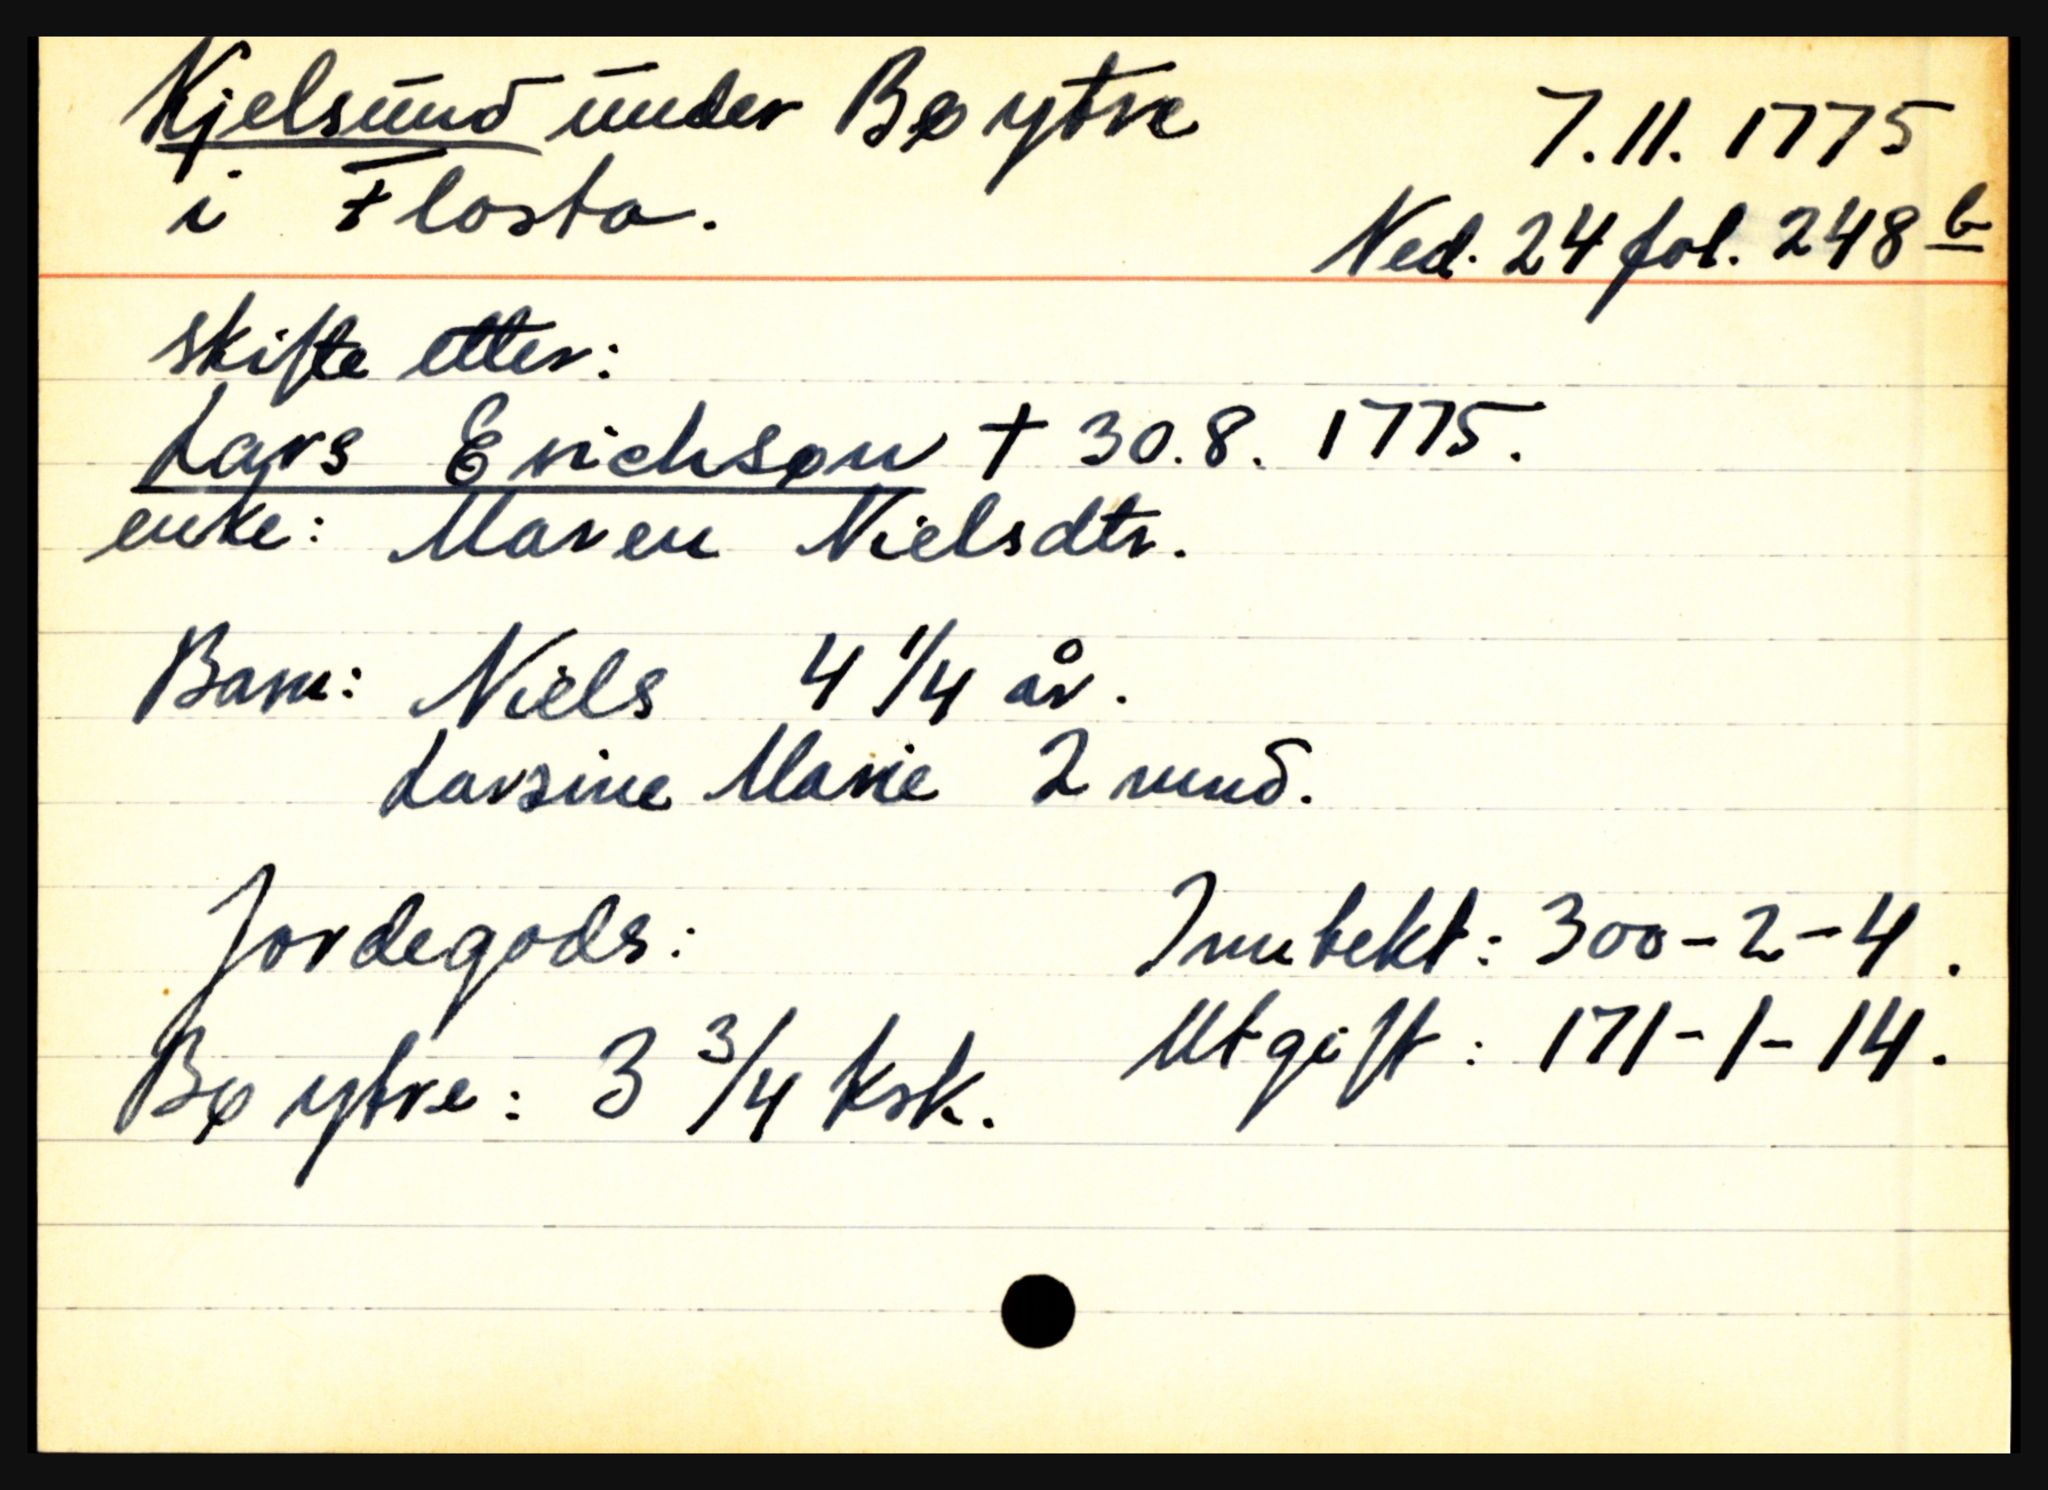 Kjelsund under Bø ytre
i Flosta.
7.11.1775
Ned. 24 fol. 248 b
skifte etter:
Lars Erichsøn † 30.8. 1775.
enke: Maren Nielsdtr.
Barn: Niels 4 1/4 år.
Larsine Marie 2 mnd.
Jordegods:
Bø ytre: 3 3/4 ksk.
Inntekt: 300-2-4.
Utgift: 171-1-14.